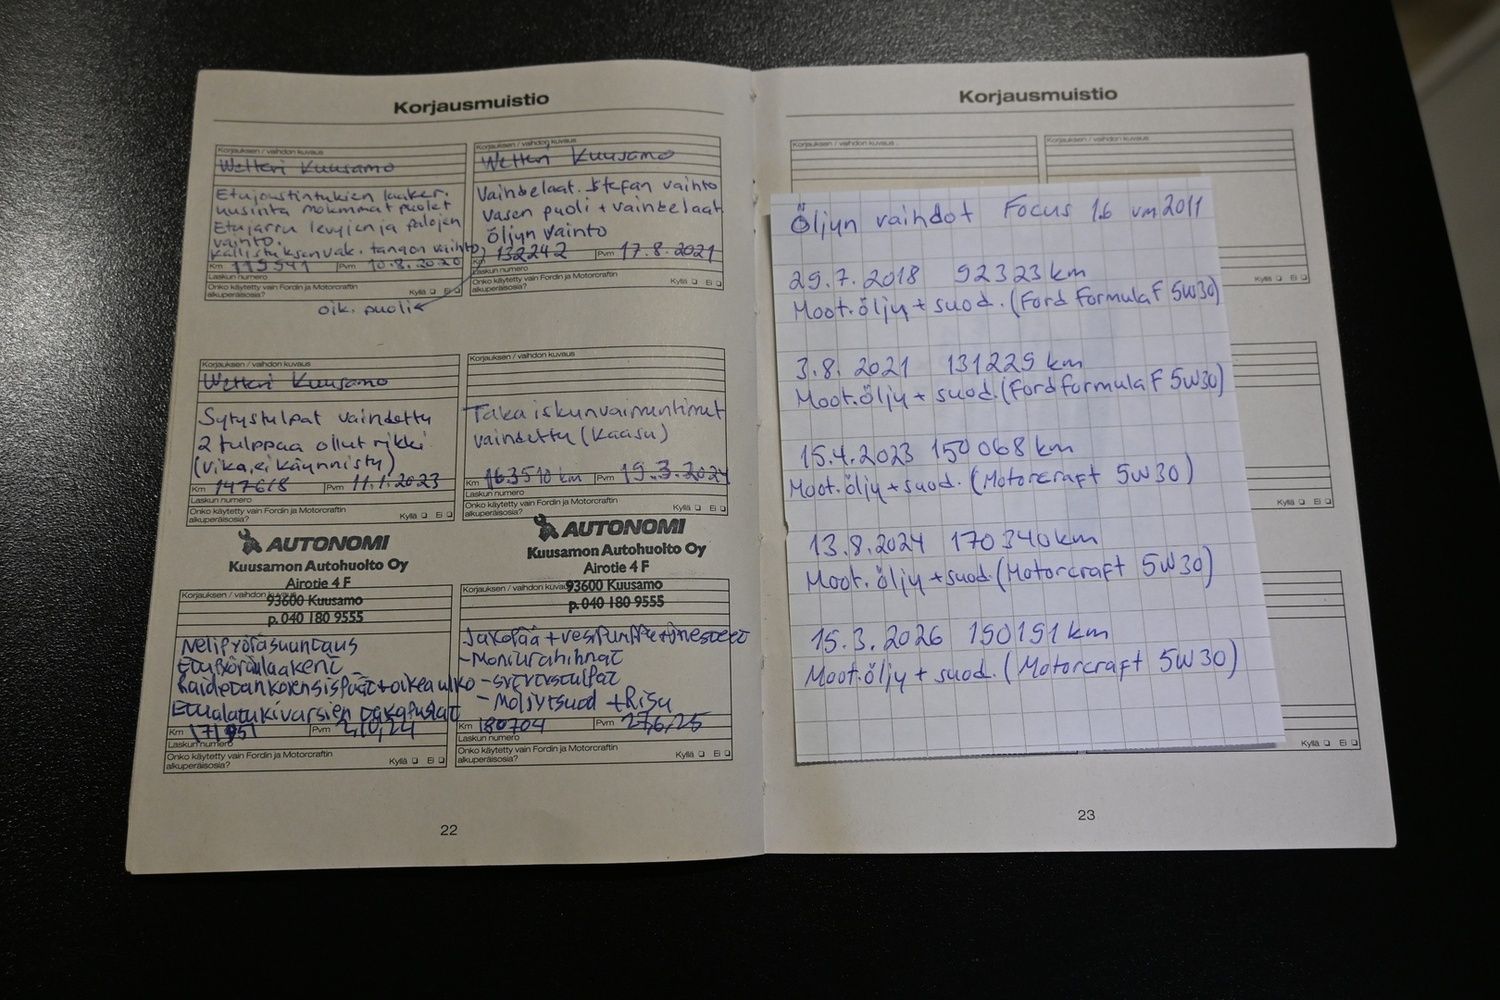 Korjausmuistio
Korjauksen / vaihdon kuvaus
Wetteri Kuusamo
Etujoustintukien laaker.
uusinta molemmat puolet
Etujarru levyjen ja palojen
vaihto.
kallistuksenvak. tangon vaihto
Km 115541 Pvm 10.8.2020
Laskun numero
Onko käytetty vain Fordin ja Motorcraftin
alkuperäisosia? Kyllä Ei
oik. puoli
Korjauksen / vaihdon kuvaus
Wetteri Kuusamo
Vaihdelaat. Stefan vaihto
vasen puoli + vaihdelaat.
öljyn vaihto
Km 132242 Pvm 17.8.2021
Laskun numero
Onko käytetty vain Fordin ja Motorcraftin
alkuperäisosia? Kyllä Ei
Korjauksen / vaihdon kuvaus
Wetteri Kuusamo
Sytystulpat vaihdettu
2 tulppaa ollut rikki
(vika, ei käynnisty)
Km 147618 Pvm 11.1.2023
Laskun numero
Onko käytetty vain Fordin ja Motorcraftin
alkuperäisosia? Kyllä Ei
Korjauksen / vaihdon kuvaus
Taka iskunvaimentimet
vaihdettu (kaasu)
Km 163510 km Pvm 19.3.2024
Laskun numero
Onko käytetty vain Fordin ja Motorcraftin
alkuperäisosia? Kyllä Ei
AUTONOMI
Kuusamon Autohuolto Oy
Airotie 4 F
93600 Kuusamo
p. 040 180 9555
Korjauksen / vaihdon kuvaus
Nelipyöräsuuntaus
Etupyöränlaakerit
Raidetankoiensispäät+oikea ulko
Etualatukivarsien takapuslat
Km 171951 Pvm 2,10,24
Laskun numero
Onko käytetty vain Fordin ja Motorcraftin
alkuperäisosia? Kyllä Ei
AUTONOMI
Kuusamon Autohuolto Oy
Airotie 4 F
93600 Kuusamo
p. 040 180 9555
Korjauksen / vaihdon kuvaus
Jakopää + vesipumppu+jnesteet
-Moniurahihnat
-sytytystulpat
-Möljytsuod + Risu
Km 180704 Pvm 27,6,25
Laskun numero
Onko käytetty vain Fordin ja Motorcraftin
alkuperäisosia? Kyllä Ei
22
Korjausmuistio
Korjauksen / vaihdon kuvaus
Korjauksen / vaihdon kuvaus
Öljyn vaihdot Focus 1.6 vm2011
29.7.2018 92323 km
Moot.öljy + suod. (Ford Formula F 5W30)
3.8.2021 131229 km
Moot.öljy + suod. (Ford Formula F 5W30)
15.4.2023 150068 km
Moot.öljy + suod. (Motorcraft 5W30)
13.8.2024 170340 km
Moot.öljy + suod. (Motorcraft 5W30)
15.3.2026 190191 km
Moot.öljy + suod. (Motorcraft 5W30)
Kyllä Ei
Kyllä Ei
Kyllä Ei
23